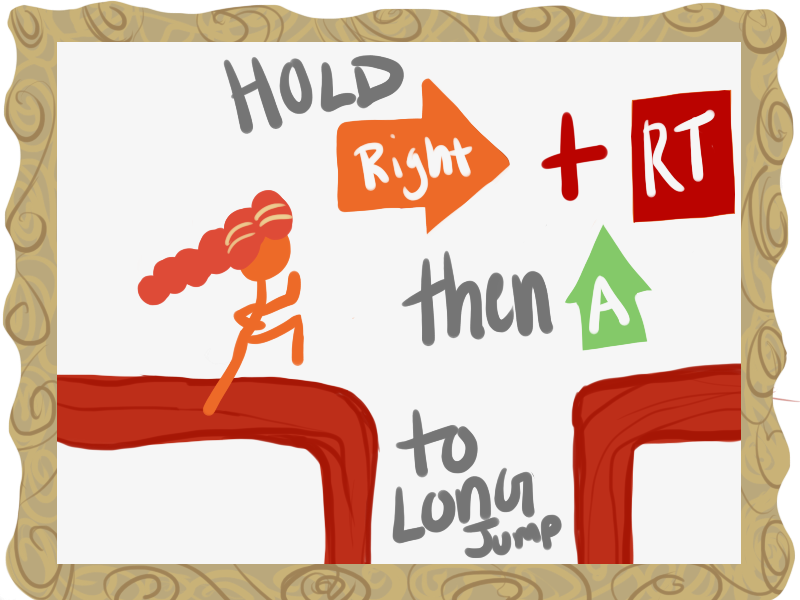 HOLD
Right + RT
then A
to
Long
Jump